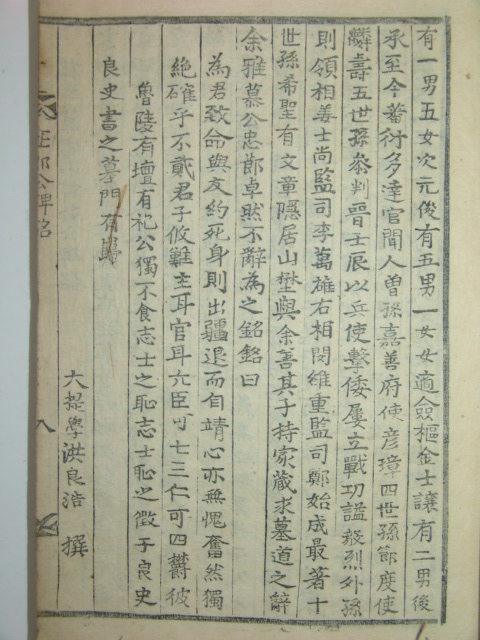 有一男五女次元俊有五男一女女適僉樞金士讓有二男後
承至今蕃衍多達官聞人曾孫嘉善府使彦璋四世孫節度使
麟壽五世孫叅判晋壬辰以兵使擊倭屢立戰功諡毅烈外孫
則領相姜士尚監司李萬雄右相閔維重監司鄭始成最著十
世孫希聖有文章隱居山樊與余善其子持家蔵求墓道之辭
余雅慕公忠節卓然不辭為之銘銘曰
為君致命與友約死身則出疆退而自靖心亦無愧奮然獨
絶確乎不貳君子攸難主耳官耳六臣可七三仁可四欝彼
魯陵有壇有祀公獨不食志士之恥志士恥之徵于良史
良史書之墓門有歸
大提學洪良浩 撰
公碑銘 八